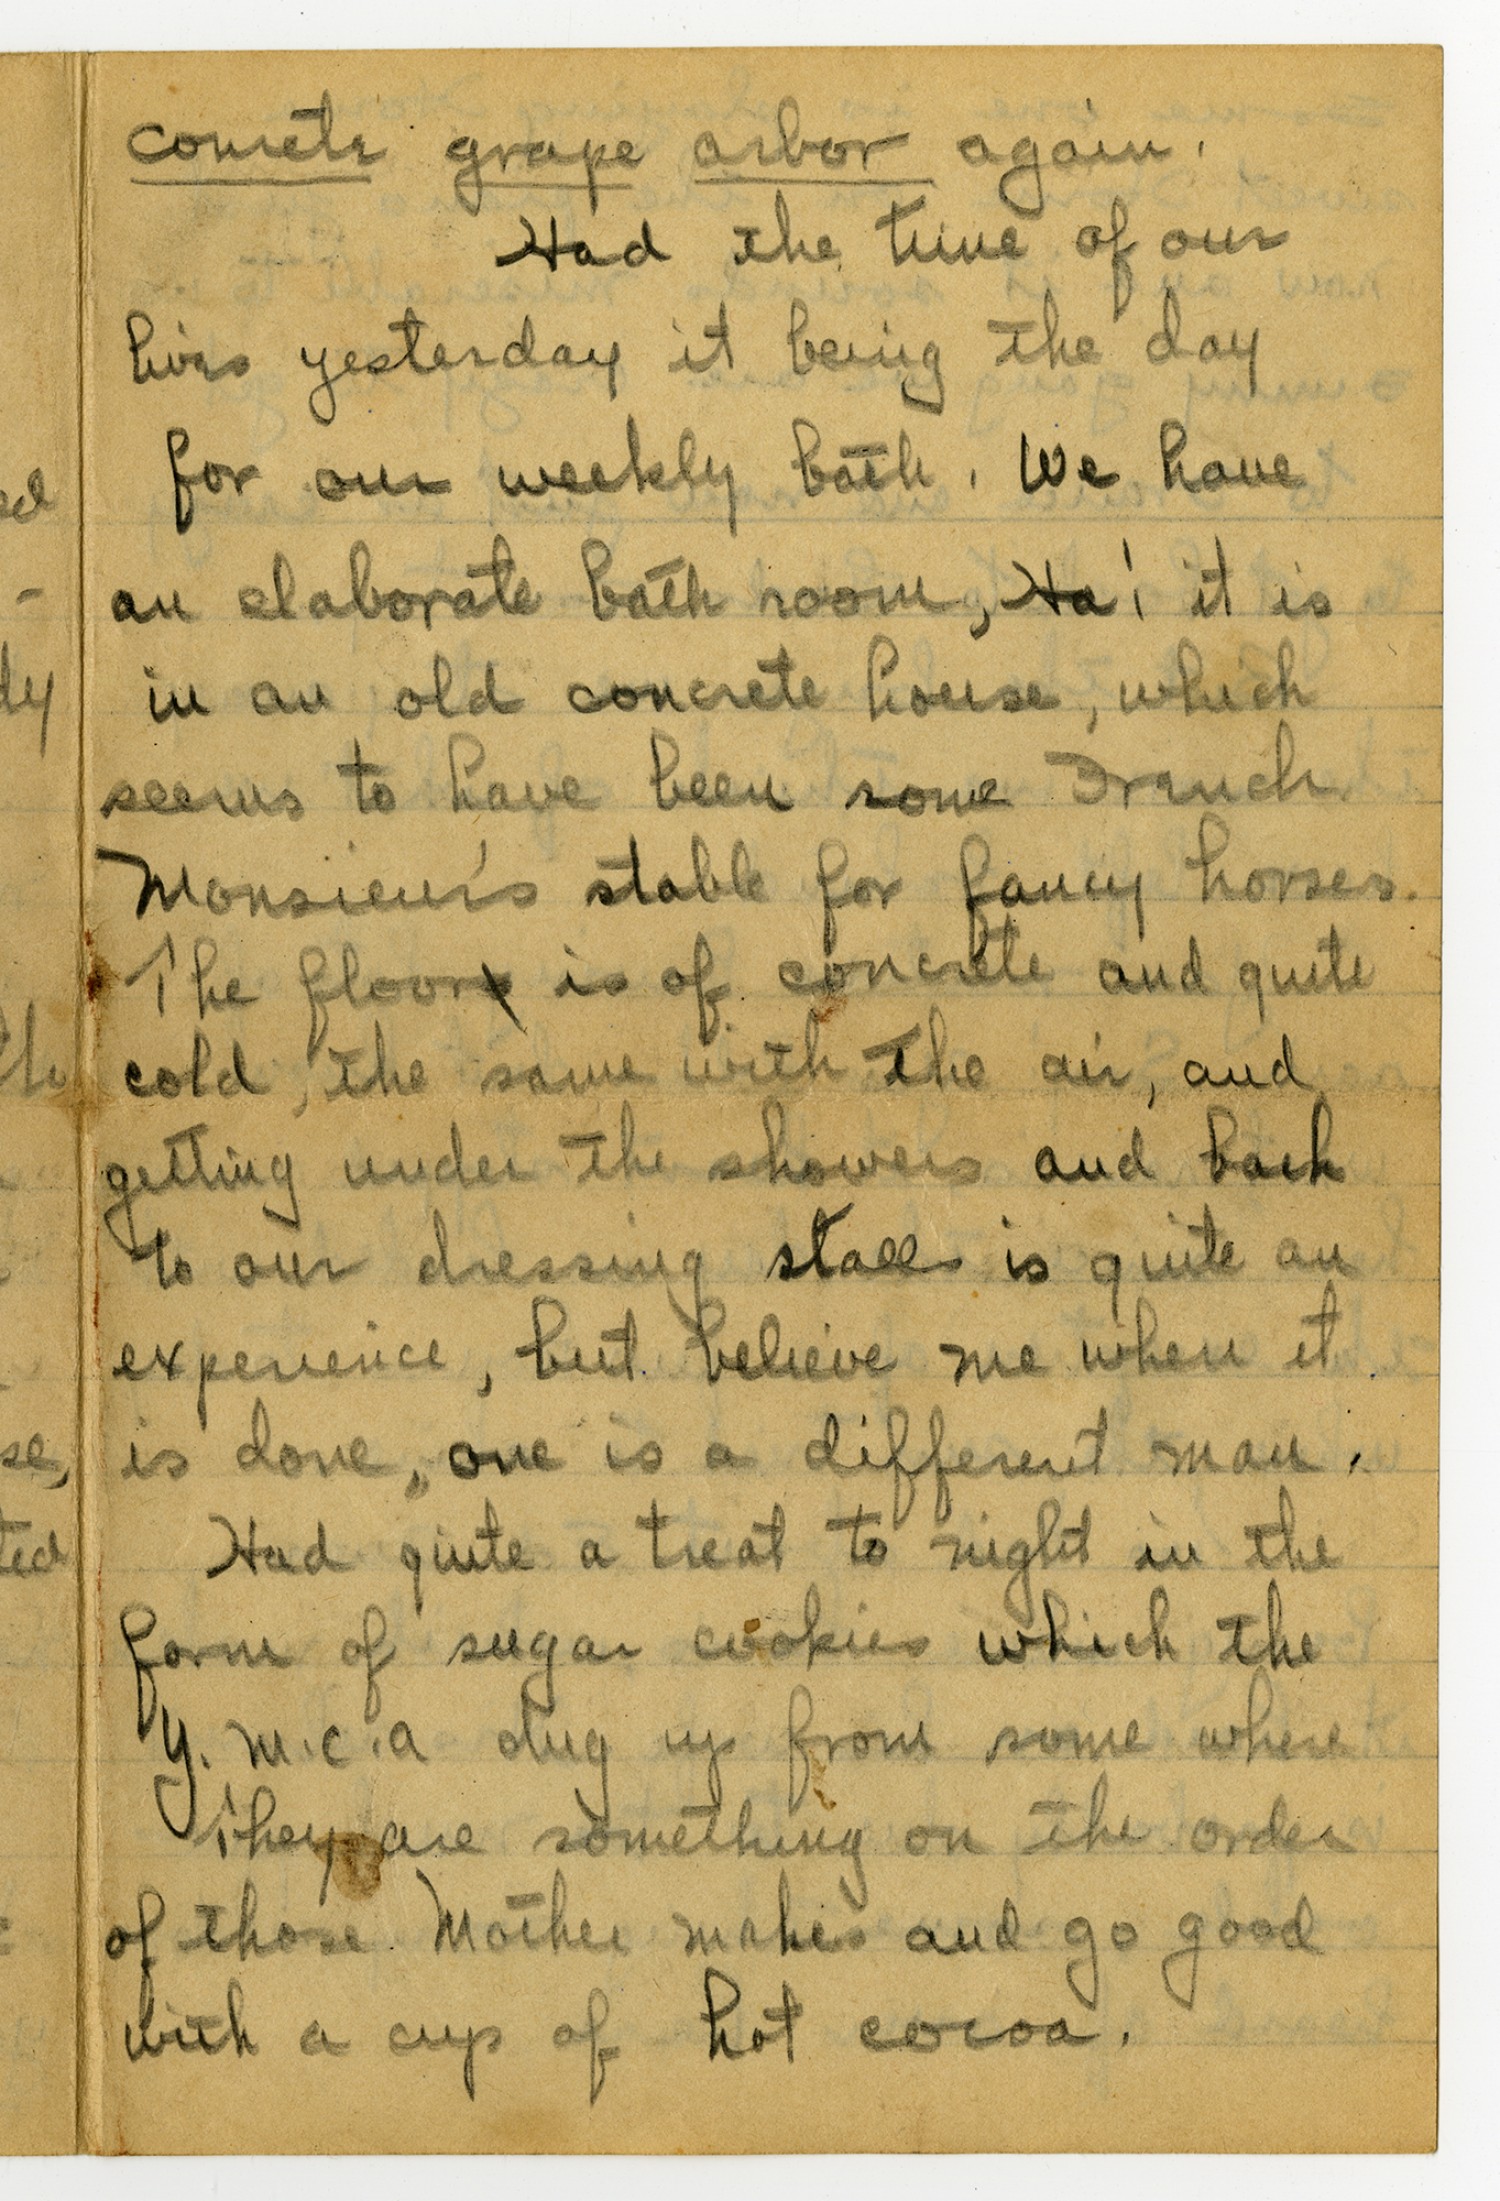 concrete grape arbor again.
Had the time of our
lives yesterday it being the day
for our weekly bath. We have
an elaborate bath room, Ha! it is
in an old concrete house, which
seems to have been some French
Monsieur's stable for fancy horses.
The floor is of concrete and quite
cold, the same with the air, and
getting under the showers and back
to our dressing stalls is quite an
experience, but believe me when it
is done, one is a different man.
Had quite a treat to night in the
form of sugar cookies which the
Y.M.C.A dug up from some where
They are something on the order
of those Mother makes and go good
with a cup of hot cocoa.